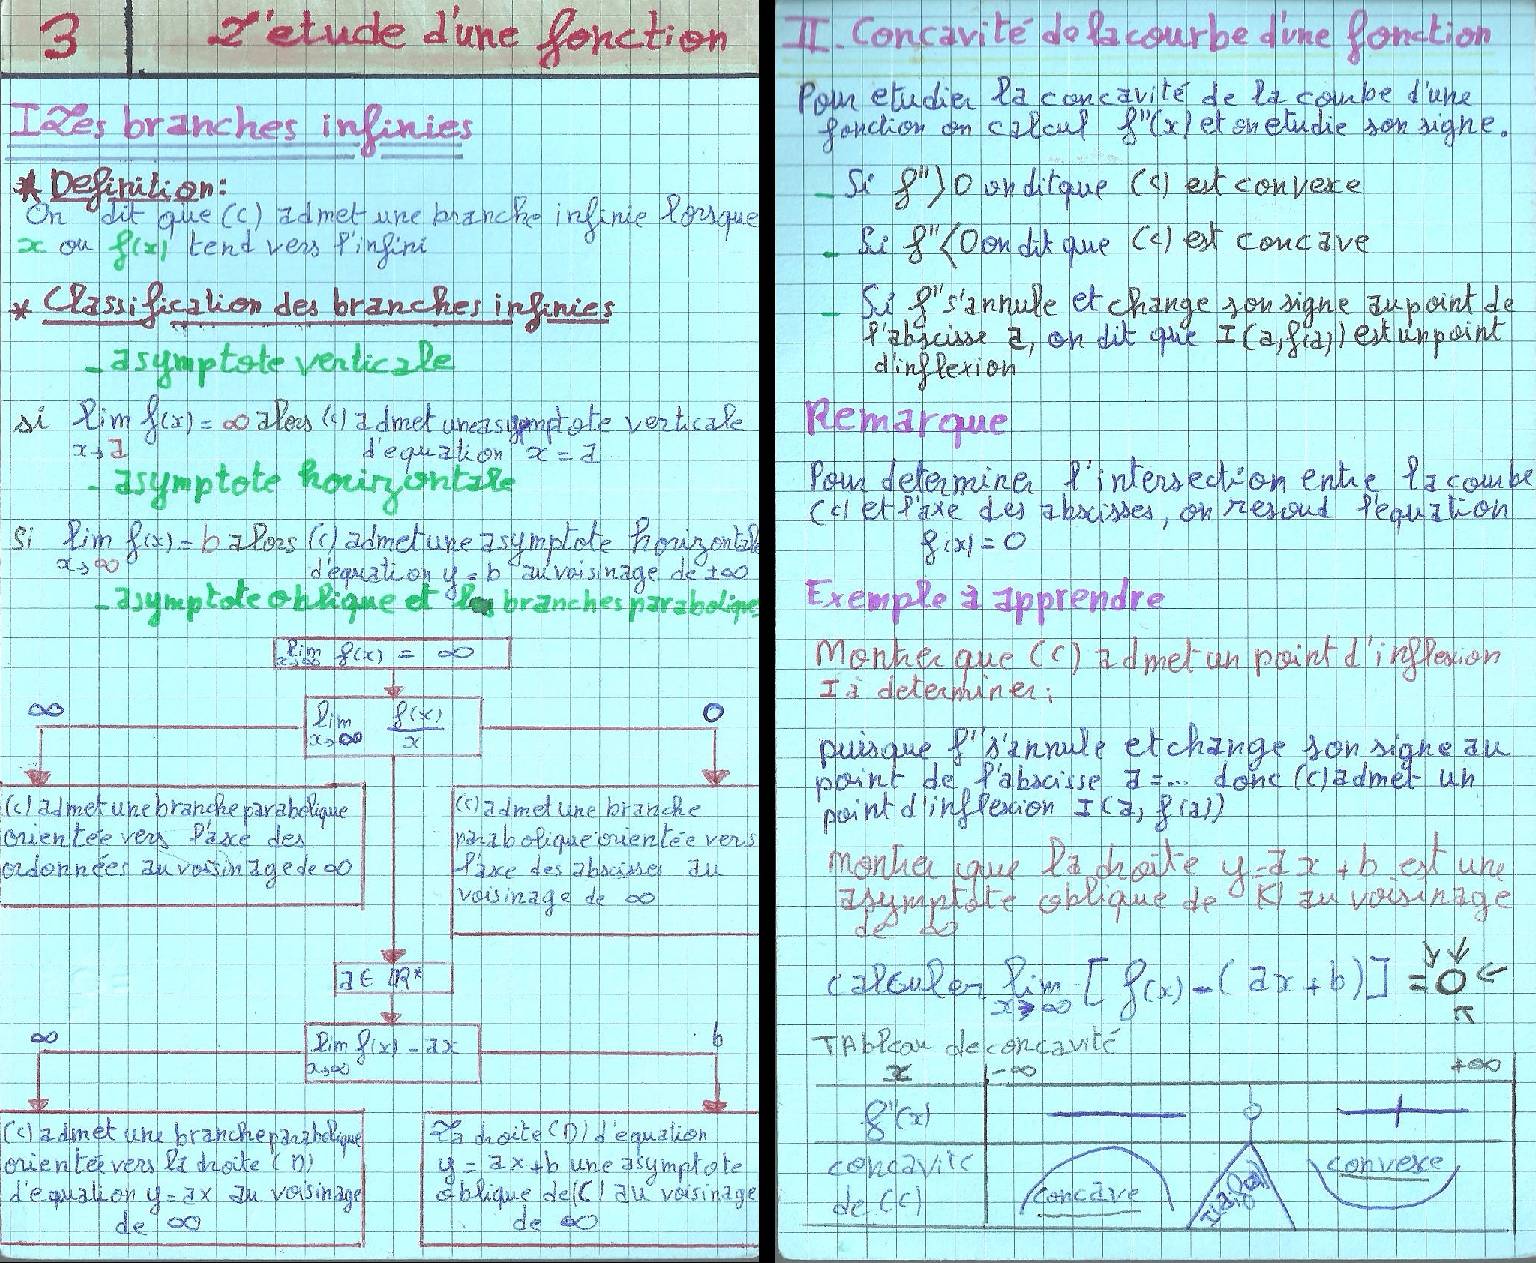 3 L'etude d'une fonction
I Les branches infinies
* Definition:
On dit que (C) admet une branche infinie lorsque
x ou f(x) tend vers l'infini
* Classification des branches infinies
- asymptote verticale
si lim f(x) = ∞ alors (C) admet une asymptote verticale
x→a d'equation x = a
- asymptote horizontale
Si lim f(x) = b alors (C) admet une asymptote horizontale
x→∞ d'equation y = b au voisinage de ±∞
- asymptote oblique et les branches parabolique
lim f(x) = ∞
x→∞
∞
lim f(x)/x
x→∞
0
(C) admet une branche parabolique
orientée vers l'axe des
ordonnées au voisinage de ∞
(C) admet une branche
parabolique orientée vers
l'axe des abscisses au
voisinage de ∞
a ∈ IR*
∞
lim f(x) - ax
x→∞
b
(C) admet une branche parabolique
orientée vers la droite (D)
d'equation y = ax au voisinage
de ∞
La droite (D) d'equation
y = ax+b une asymptote
oblique de (C) au voisinage
de ∞
II. Concavité de la courbe d'une fonction
Pour etudier la concavité de la courbe d'une
fonction on calcul f"(x) et on etudie son signe.
- Si f" > 0 on dit que (C) est convexe
- Si f" < 0 on dit que (C) est concave
- Si f" s'annule et change son signe au point de
l'abscisse a, on dit que I(a, f(a)) est un point
d'inflexion
Remarque
Pour determiner l'intersection entre la courbe
(C) et l'axe des abscisses, on resoud l'equation
f(x) = 0
Exemple à apprendre
Montrer que (C) admet un point d'inflexion
I à determiner:
puisque f" s'annule et change son signe au
point de l'abscisse a = ... donc (C) admet un
point d'inflexion I(a, f(a))
Montrer que la droite y = ax + b est une
asymptote oblique de (C) au voisinage
de ∞
Calculer lim [f(x) - (ax + b)] = 0
x→∞
TAbleau de concavité
x -∞ +∞
f"(x) - 0 +
concavité
de (C)
concave
I(a, f(a))
convexe